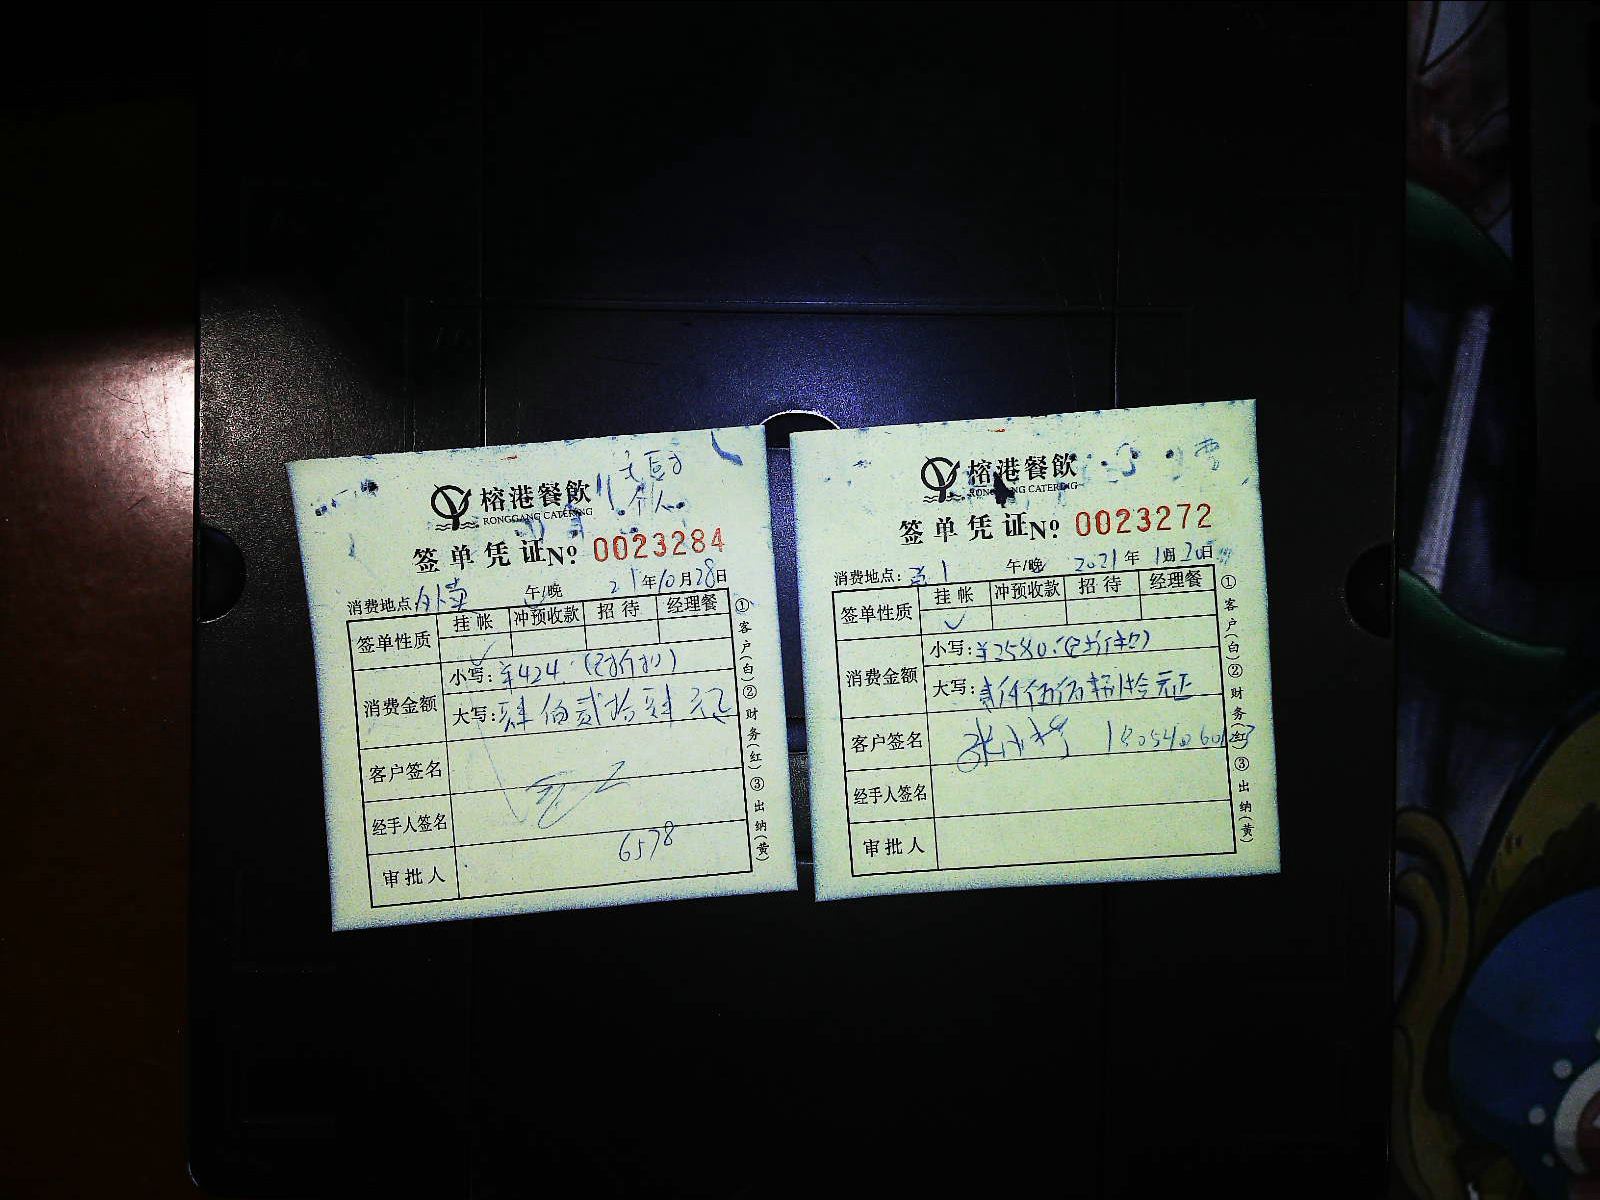 榕港餐飲
RONGGANG CATERING
个人
签单凭证 No. 0023284
消费地点 外卖 午/晚 21年10月28日
签单性质 挂帐 冲预收款 招待 经理餐
✓
消费金额 小写:¥424.(已折扣)
大写:肆佰贰拾肆元正
客户签名
经手人签名
审批人 6578
①客户(白)②财务(红)③出纳(黄)
榕港餐飲
RONGGANG CATERING
签单凭证 No. 0023272
消费地点: 1 午/晚 2021年1月20日
签单性质 挂帐 冲预收款 招待 经理餐
✓
消费金额 小写:¥2580.(已折扣)
大写:贰仟伍佰捌拾元正
客户签名
经手人签名
审批人
①客户(白)②财务(红)③出纳(黄)